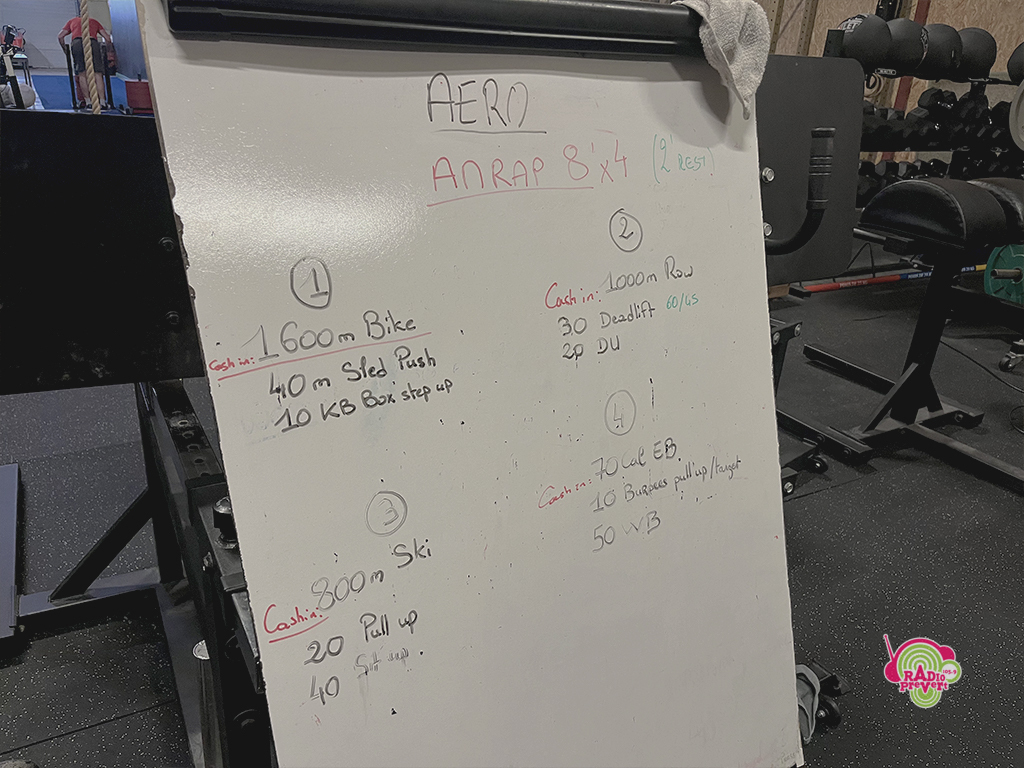 AERO
AMRAP 8' x4 (2' REST)
1
Cash in: 1600m Bike
40 m Sled Push
10 KB Box step up
2
Cash in: 1000m Row
30 Deadlift 60/45
20 DU
3
800m Ski
Cash in:
20 Pull up
40 Sit up
4
70 Cal EB
Cash in:
10 Burpees pull up/target
50 WB
RADio
prévert